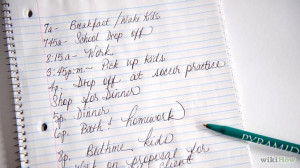 7a- Breakfast / Wake Kids
745a- School Drop off
8:15a- Work
3:45p.m- Pick up kids
4p- Drop off at soccer practice
Shop for Dinner
5p- Dinner
6p- Bath & homework
7p- Bedtime kids
Work on proposal for
client
PYRAMID
wikiHow